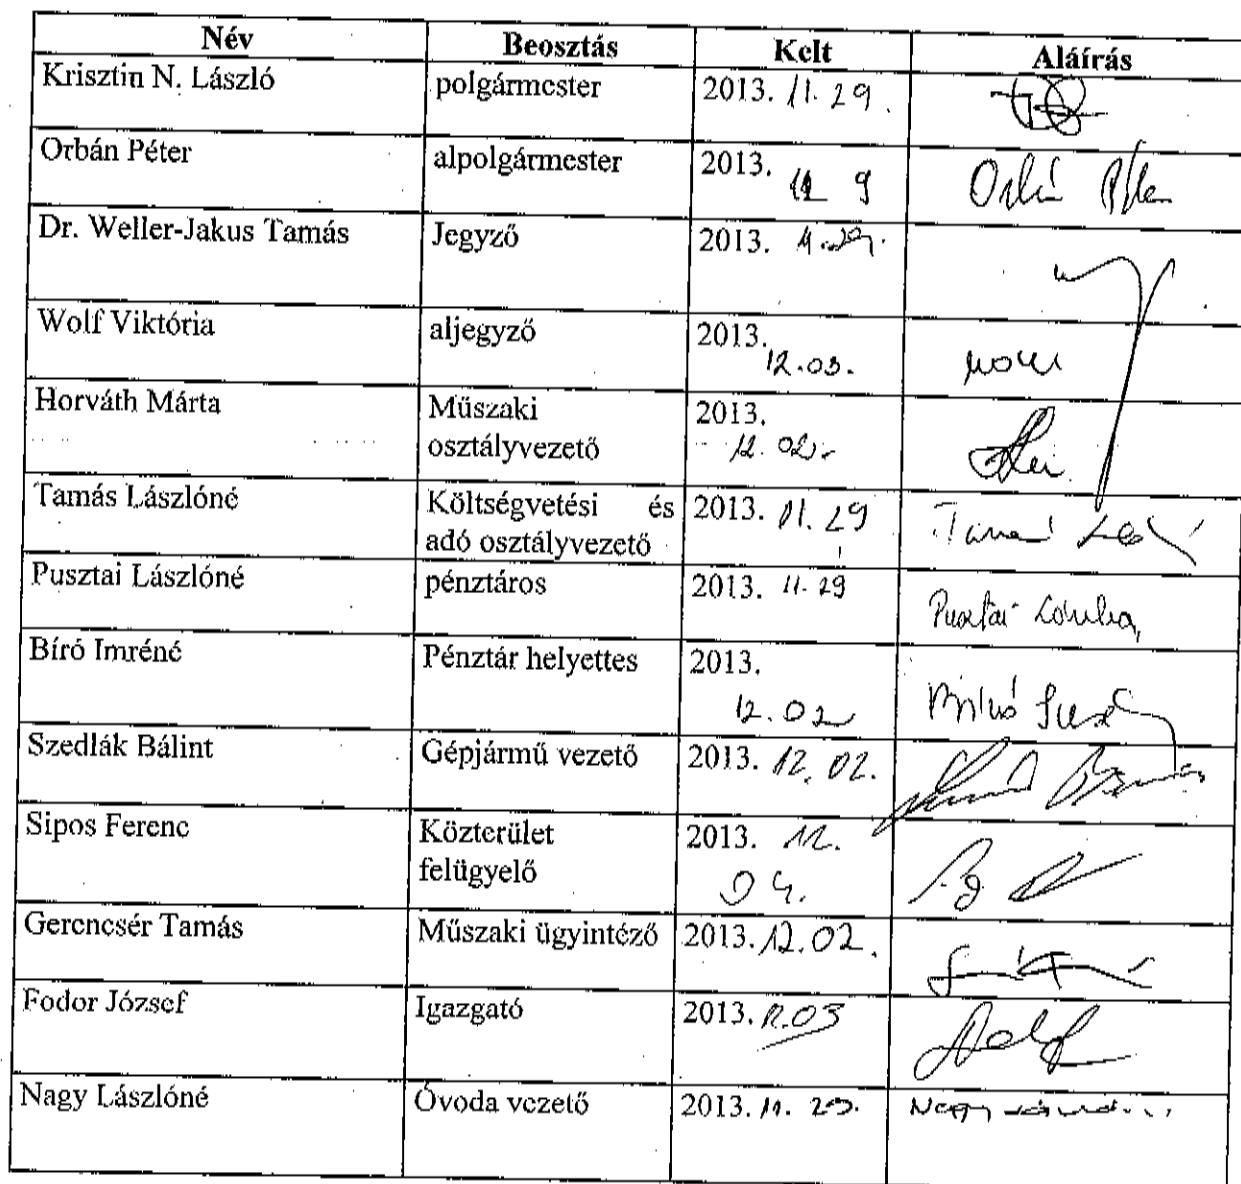 Név Beosztás Kelt Aláírás
Krisztin N. László polgármester 2013. 11. 29.
Orbán Péter alpolgármester 2013.
Orbán Péter
Dr. Weller-Jakus Tamás Jegyző 2013. 11.29.
Wolf Viktória aljegyző 2013.
12.03.
Horváth Márta Műszaki 2013.
osztályvezető 12.02.
Tamás Lászlóné Költségvetési és 2013. 11. 29
adó osztályvezető
Pusztai Lászlóné pénztáros 2013. 11. 29
Pusztai
Bíró Imréné Pénztár helyettes 2013.
12.02
Szedlák Bálint Gépjármű vezető 2013. 12. 02.
Sipos Ferenc Közterület 2013. 12.
felügyelő 04.
Gerencsér Tamás Műszaki ügyintéző 2013. 12.02.
Fodor József Igazgató 2013. 12.03
Nagy Lászlóné Óvoda vezető 2013. 11. 29. Nagy